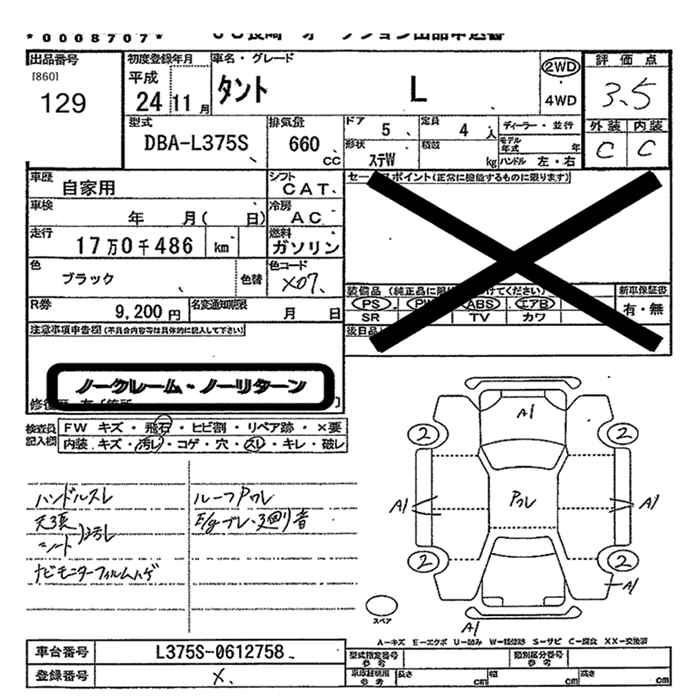 *0008707*
出品番号
[860]
129
初度登録年月
平成
24 11月
車名・グレード
タント L
2WD
・
4WD
評価点
3.5
外装 内装
C C
型式
DBA-L375S
排気量
660
CC
ドア
5
定員
4 人
形状
ステW
積載
kg
ディーラー・並行
モデル年式 年
ハンドル 左・右
車歴
自家用
シフト
CAT
車検
年 月( 日)
冷房
AC
走行
17万0千486 km
燃料
ガソリン
色
ブラック
色替
色コード
X07
R券
9,200円
名変通知期限
月 日
セールスポイント(正常に機能するものに限ります)
PS ABS エアB
SR TV カワ
新車保証書
有・無
注意事項申告欄(不具合内容等は具体的に記入して下さい)
ノークレーム・ノーリターン
検査員記入欄
FW キズ・飛石・ヒビ割・リペア跡・×要
内装 キズ・汚レ・コゲ・穴・スレ・キレ・破レ
ハンドルスレ
天張
シート 汚レ
ナビモニターフィルムハゲ
ルーフアワレ
E/gブレ・廻り音
A1
2 2
A1 アワレ A1
2 2
A1
A1
スペア
A-キズ E-エクボ U-凹み W-補修跡 S-サビ C-腐食 XX-交換済
車台番号
L375S-0612758
登録番号
X
型式指定番号
参考
類別区分番号
参考
長さ cm 幅 cm 高さ cm